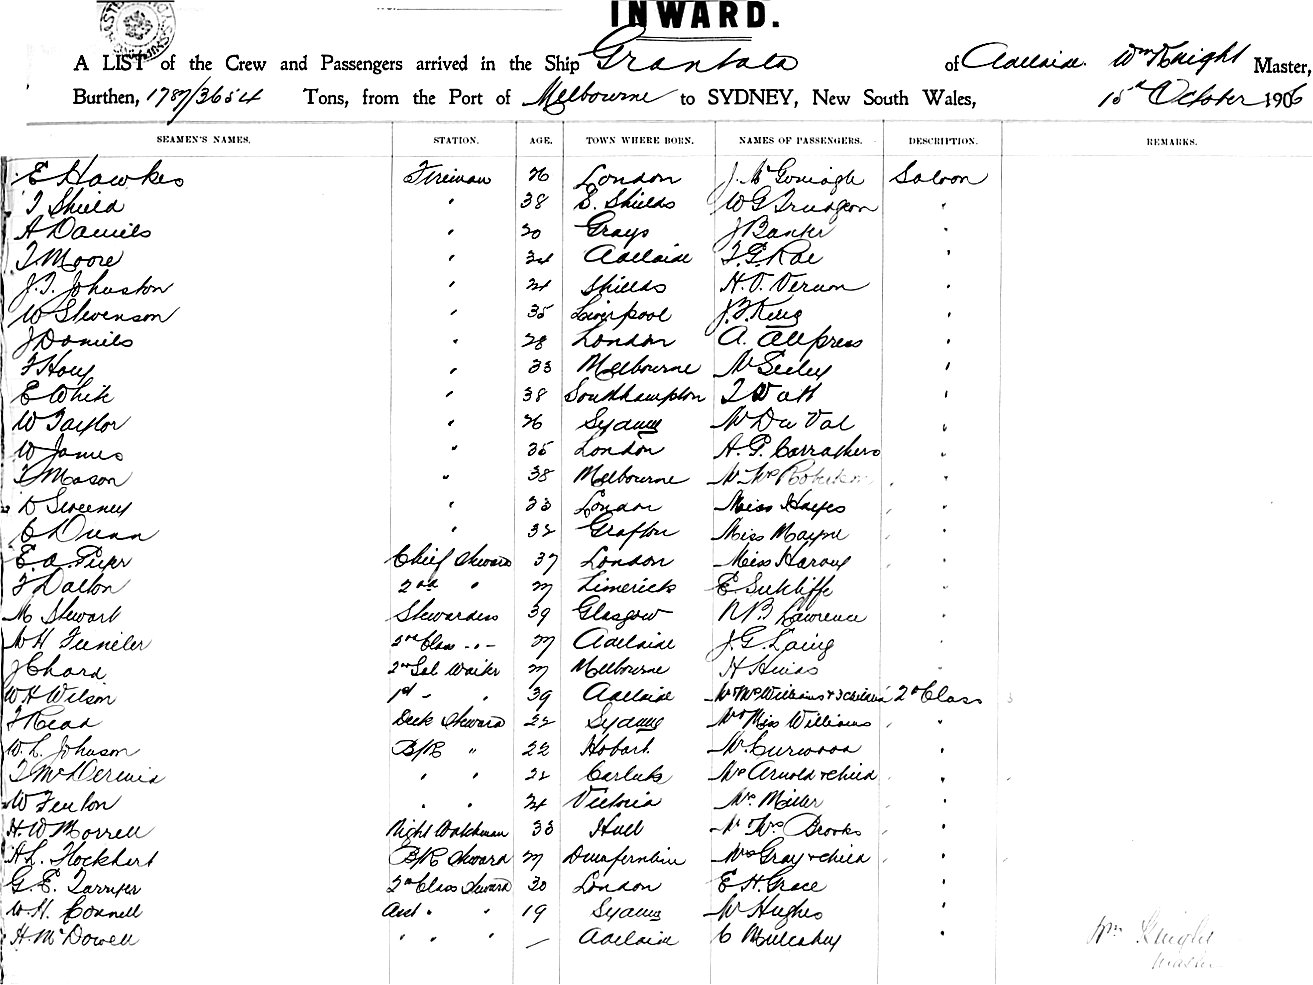 INWARD.
A LIST of the Crew and Passengers arrived in the Ship Grantala of Adelaide. Wm Knight Master,
Burthen, 1787/3654 Tons, from the Port of Melbourne to SYDNEY, New South Wales, 15th October 1906
SEAMEN'S NAMES. STATION. AGE. TOWN WHERE BORN. NAMES OF PASSENGERS. DESCRIPTION. REMARKS.
E Hawkes Fireman 26 London J. McGonagh Saloon
T Shield " 38 S. Shields W G Trudgeon "
A Daniels " 20 Grays J Banker "
T Moore " 24 Adelaide T. G. Rae "
J. T. Johnston " 24 Shields H. V. Vernon "
W Stevenson " 35 Liverpool J. F. King "
J Daniels " 28 London A. Allpress "
F Hoey " 33 Melbourne Mr Seeley "
E White " 38 Southampton T Watt "
W Taylor " 26 Sydney Mr Du Val "
W James " 35 London A. P. Carrathers "
T Mason " 38 Melbourne Mr Mrs Robertson "
D Sweeney " 33 London Miss Hayes "
C Dunn " 32 Grafton Miss Mayne "
E. A. Piper Chief Steward 37 London Miss Harvey "
F Dalton 2nd " 27 Limerick E Sutcliffe "
M Stewart Stewardess 39 Glasgow N B Lawrence "
W H 2nd Class " 27 Adelaide J. G. Laing "
J Chard 2nd Sal Waiter 27 Melbourne H Hinds "
W H Wilson 1st " " 39 Adelaide Mr Mrs Williams & 3 children 2nd Class
F Read Deck Steward 22 Sydney Mr Miss Williams "
W. L. Johnson B/R " 22 Hobart Mr Curwood "
T McDermid " " 22 Carluke Mrs Arnold & child "
W Fenton " " 24 Victoria Mrs Miller "
H. W Morrell Night Watchman 33 Hull Mr Mrs Brooks "
A L. Flockhart B/R Steward 27 Dunfermline Mrs Gray & child "
G. E. 2nd Class Steward 30 London E H. Grace "
W. H. Connell Asst " " 19 Sydney Mr Hughes "
H McDowell " " " — Adelaide C Mulcahy "
Wm Knight
Master